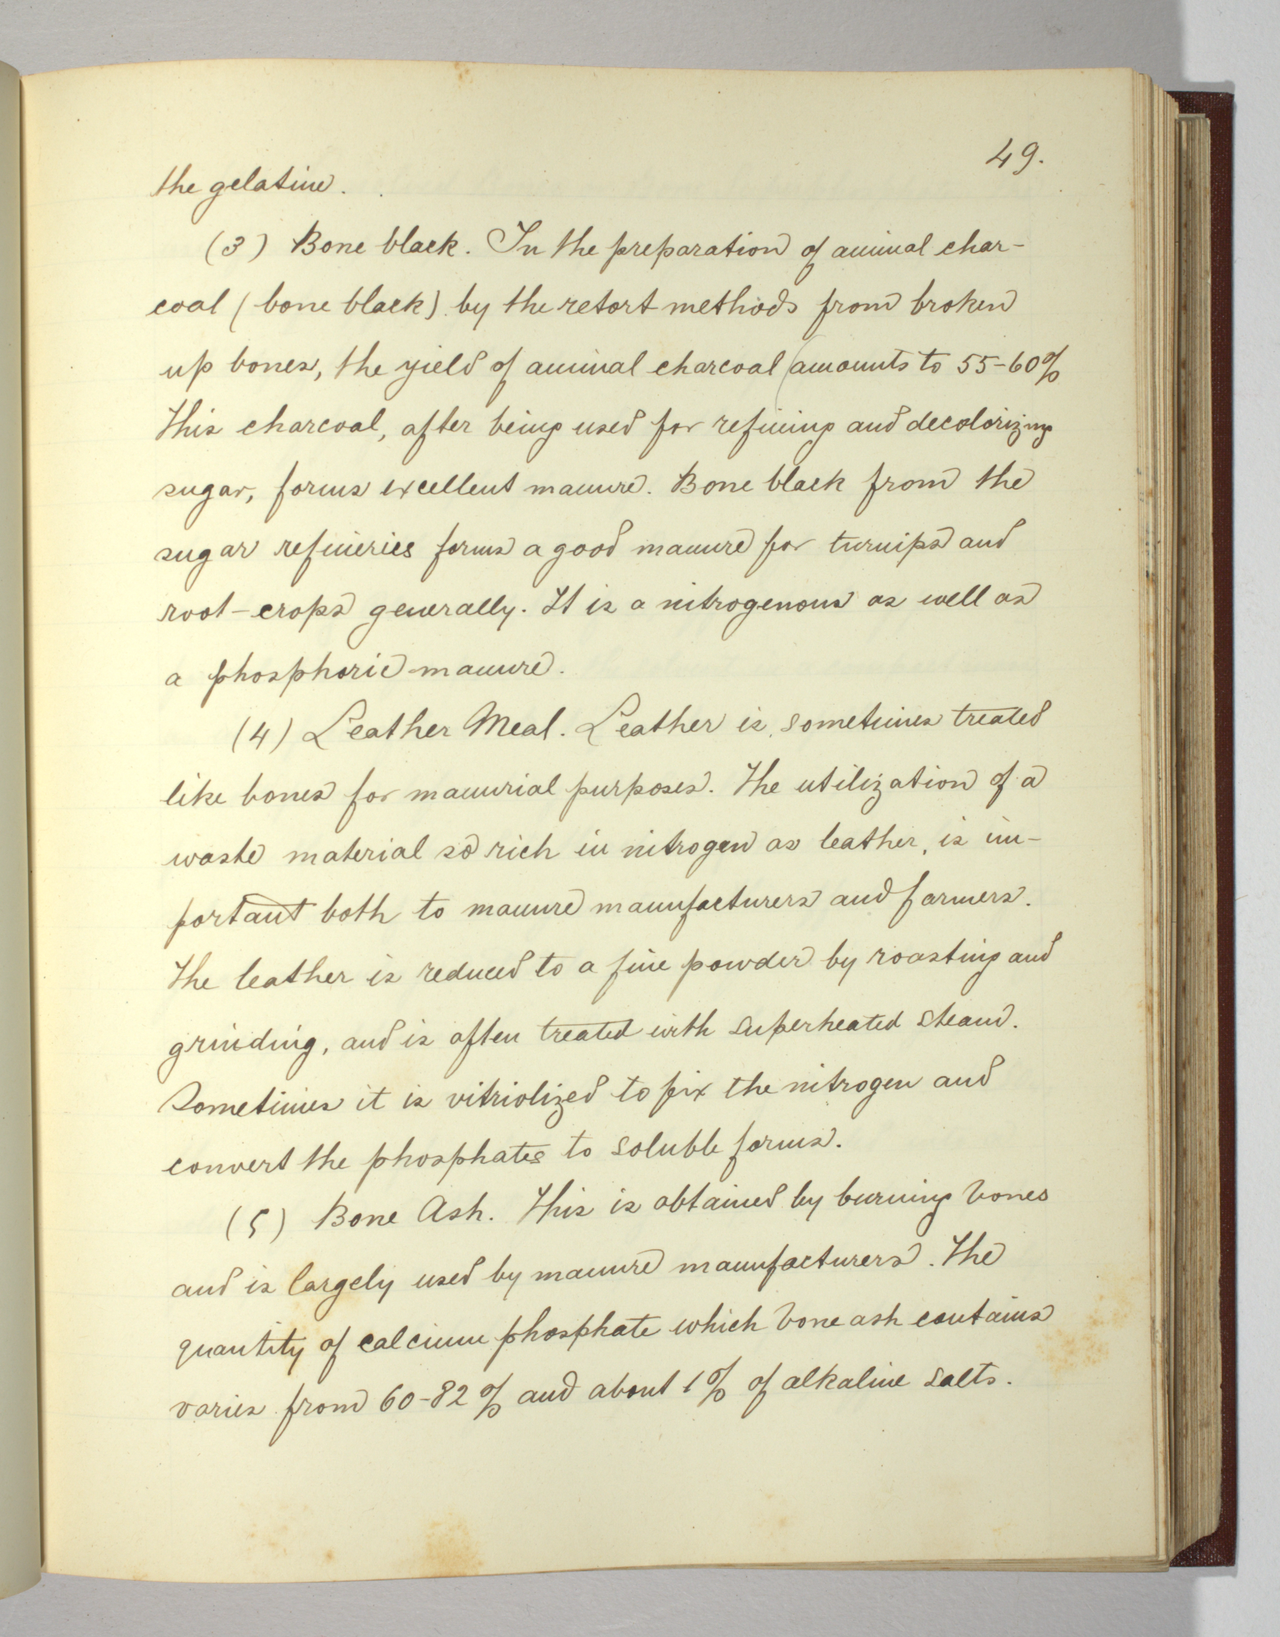 49.
the gelatine.
(3) Bone black. In the preparation of animal char-
coal (bone black) by the retort methods from broken
up bones, the yield of animal charcoal (amounts to 55-60%
This charcoal, after being used for refining and decolorizing
sugar, forms excellent manure. Bone black from the
sugar refineries forms a good manure for turnips and
root-crops generally. It is a nitrogenous as well as
a phosphoric manure.
(4) Leather Meal. Leather is sometimes treated
like bones for manurial purposes. The utilization of a
waste material so rich in nitrogen as leather, is im-
portant both to manure manufacturers and farmers.
The leather is reduced to a fine powder by roasting and
grinding, and is often treated with superheated steam.
Sometimes it is vitriolized to fix the nitrogen and
convert the phosphates to soluble forms.
(5) Bone Ash. This is obtained by burning bones
and is largely used by manure manufacturers. The
quantity of calcium phosphate which bone ash contains
varies from 60-82% and about 1% of alkaline salts.